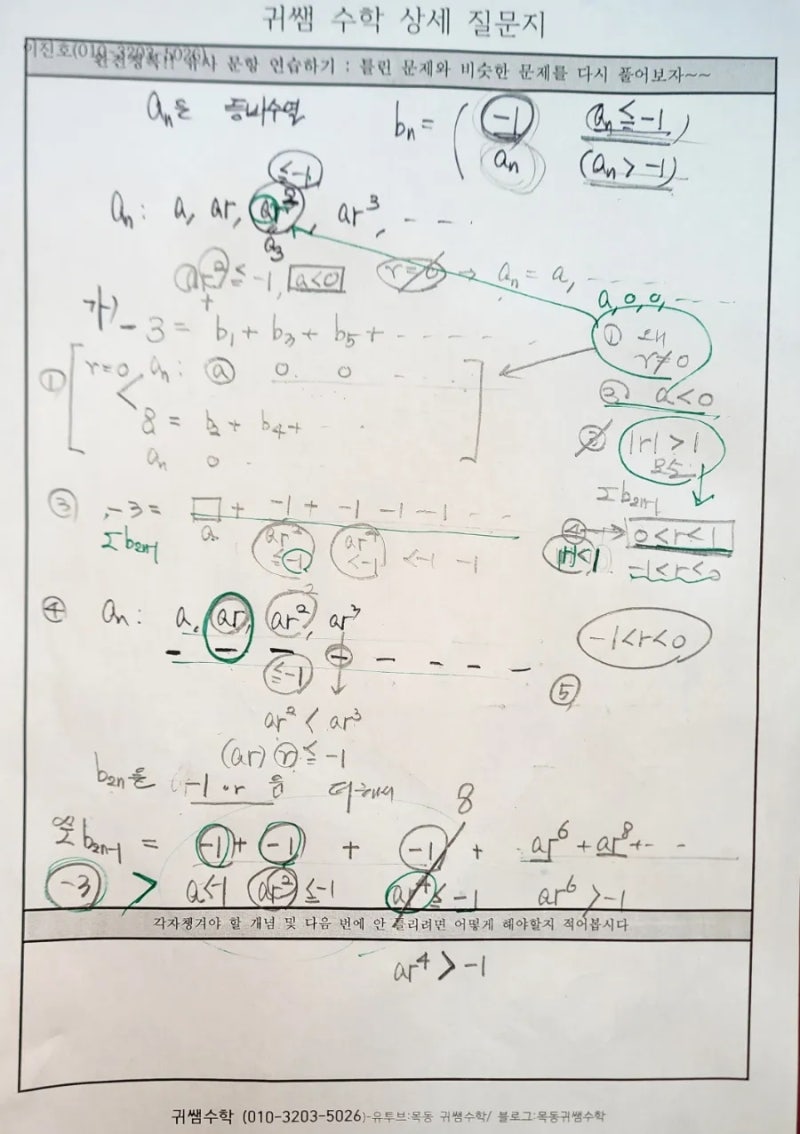 귀쌤 수학 상세 질문지
이진호(010-3203-5026)
완전정복!! 유사 문항 연습하기 : 틀린 문제와 비슷한 문제를 다시 풀어보자~~
aₙ은 등비수열 bₙ = ( -1 (aₙ ≤ -1)
aₙ (aₙ > -1)
≤ -1
aₙ : a, ar, ar², ar³, - - -
a₃
ar² ≤ -1, a<0 r=0 → aₙ = a,
+ a, 0, 0, - - -
가) -3 = b₁ + b₃ + b₅ + - - - - -
① 왜 r≠0
① r=0 aₙ : a 0. 0
② a<0
8 = b₂ + b₄ + - -
② |r| > 1 모순
aₙ 0
Σb₂ₙ₋₁
③ -3 = □ + -1 + -1 -1 -1 - -
④ → 0<r<1
Σb₂ₙ₋₁ a ar² ≤ -1 ar⁴ < -1 < -1 -1
|r|<1 -1<r<0
④ aₙ : a, ar, ar², ar³
-1<r<0
- - - - - - - -
≤ -1
⑤
ar² < ar³
(ar) r ≤ -1
b₂ₙ은 -1 or 음 더해서 8
Σb₂ₙ₋₁ = -1 + -1 + -1 + ar⁶ + ar⁸ + - -
-3 > a<-1 ar² ≤ -1 ar⁴ ≤ -1 ar⁶ > -1
각자챙겨야 할 개념 및 다음 번에 안 틀리려면 어떻게 해야할지 적어봅시다
ar⁴ > -1
귀쌤수학 (010-3203-5026)-유투브:목동 귀쌤수학/ 블로그:목동귀쌤수학